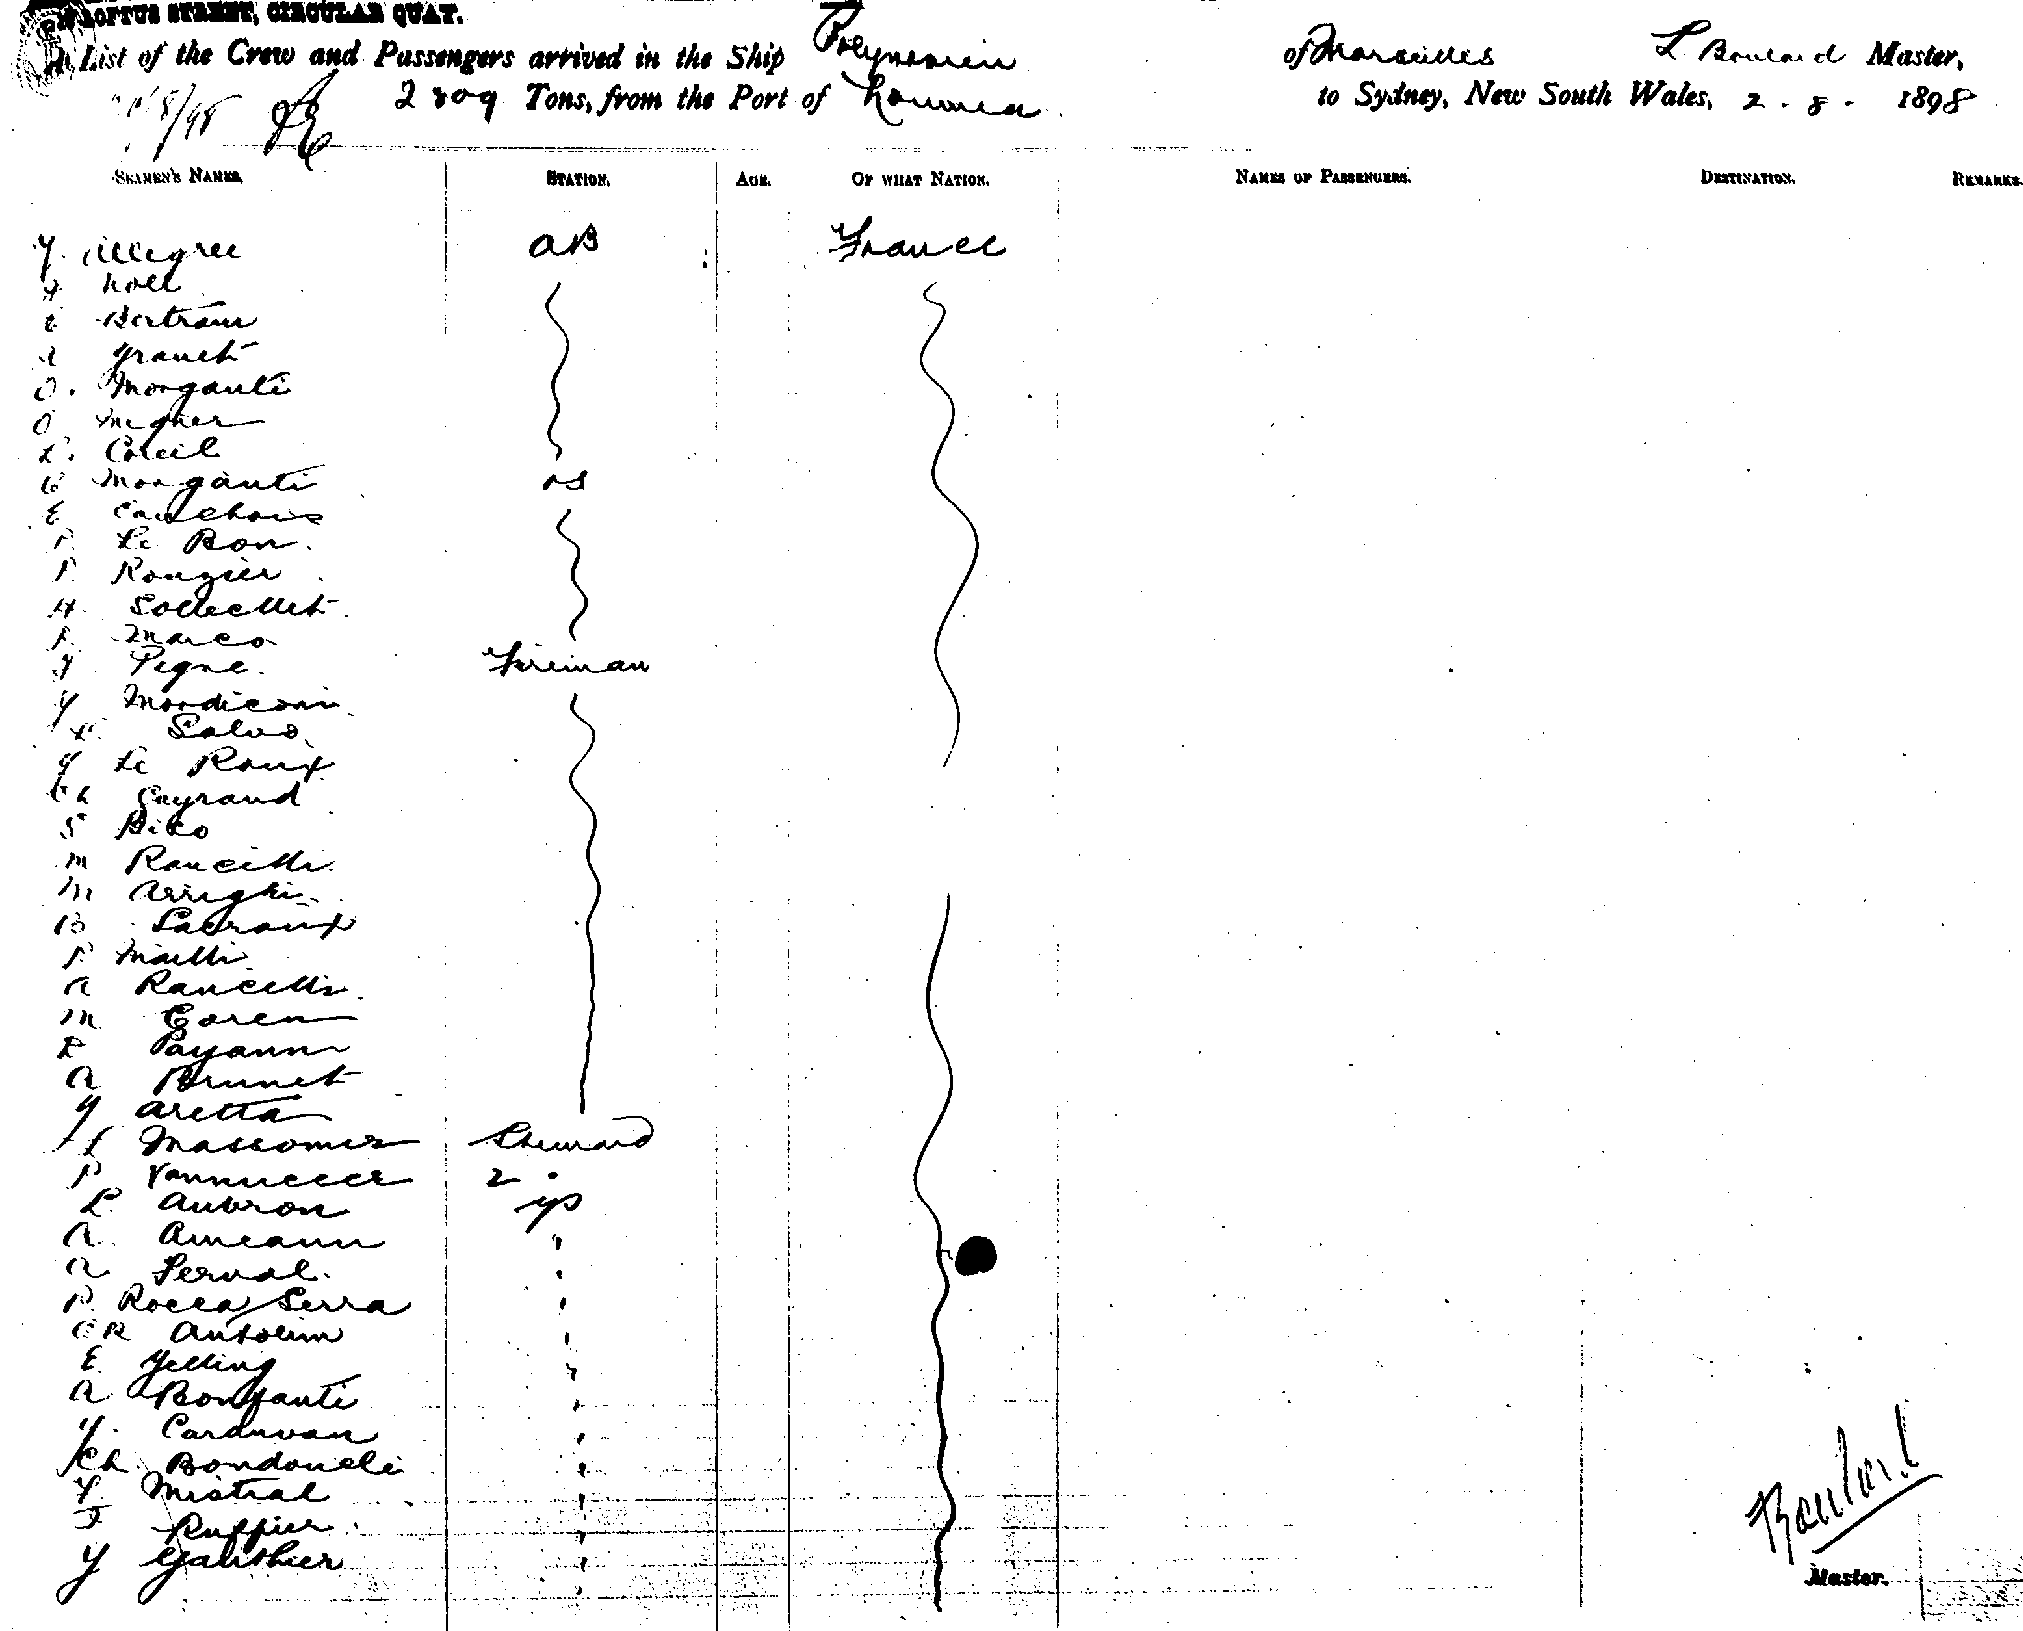 LOFTUS STREET, CIRCULAR QUAY.
A List of the Crew and Passengers arrived in the Ship Polynesien of Marseilles L Boulard Master,
2809 Tons, from the Port of Noumea to Sydney, New South Wales, 2 . 8 . 1898
SEAMEN'S NAMES. STATION. AGE. OF WHAT NATION. NAMES OF PASSENGERS. DESTINATION. REMARKS.
Allegree AB France
Noel
Bertram
Granet
O. Morganti
O
L. Coreil
Morganti OS
E Cauchois
P. Le Bon.
P. Rouzier
H.
P. Marco
Pegne. Fireman
Y Mordiconi
Salvo
Y Le Roux
Ch Gayraud
S Biko
M Rancelli
M Arrighi
B Lacroux
P. Maelli
A Rancelli
M Coren
R Payann
A Brunet
Y Aretta
Massomer Steward
P Vannuccer 2 "
L. Aubron
A. Ameann
A Serval.
P. Rocca Serra
Antolini
E Yelling
A Bonfanti
Y. Caranvan
Ch Bondoneli
Y Mistral
F Ruffier
Y Gauthier
Boulard
Master.